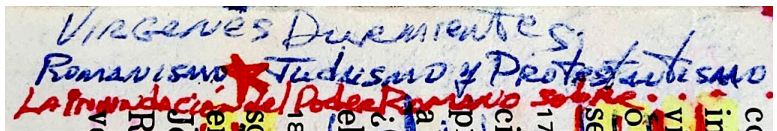 Virgenes Durmientes.
Romanismo ★ Judaismo y Protestantismo
La Inundación del Poder Romano sobre. . . .